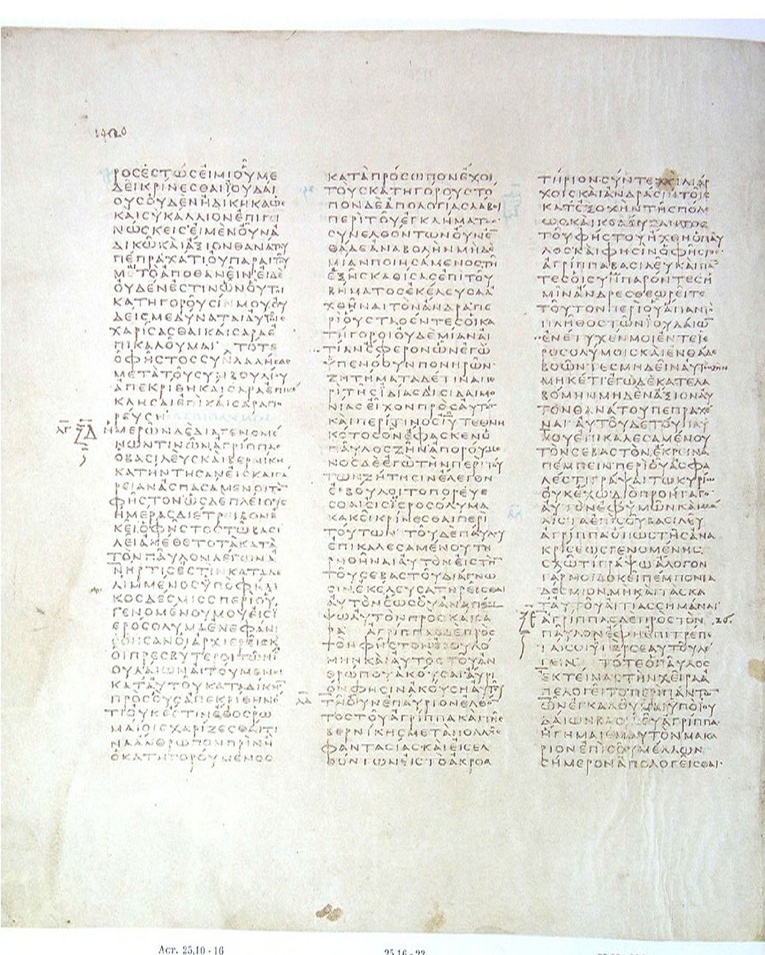 1420
ΡΟCΕCΤΩCΕΙΜΙΟΥΜΕ
ΔΕΙΚΡΙΝΕCΘΑΙΙΟΥΔΑΙ
ΟΥCΟΥΔΕΝΗΔΙΚΗΚΑΩC
ΚΑΙCΥΚΑΛΛΙΟΝΕΠΙΓΙ
ΝΩCΚΕΙCΕΙΜΕΝΟΥΝΑ
ΔΙΚΩΚΑΙΑΞΙΟΝΘΑΝΑΤΟΥ
ΠΕΠΡΑΧΑΤΙΟΥΠΑΡΑΙΤΟΥ
ΜΕΤΟΑΠΟΘΑΝΕΙΝΕΙΔΕ
ΟΥΔΕΝΕCΤΙΝΩΝΟΥΤΟΙ
ΚΑΤΗΓΟΡΟΥCΙΝΜΟΥΟΥ
ΔΕΙCΜΕΔΥΝΑΤΑΙΑΥΤΟΙC
ΧΑΡΙCΑCΘΑΙΚΑΙCΑΡΑΕ
ΠΙΚΑΛΟΥΜΑΙ ΤΟΤΕ
ΟΦΗCΤΟCCΥΝΛΑΛΗCΑC
ΜΕΤΑΤΟΥCΥΜΒΟΥΛΙΟΥ
ΑΠΕΚΡΙΘΗΚΑΙCΑΡΑΕΠΙΚΕ
ΚΛΗCΑΙΕΠΙΚΑΙCΑΡΑΠΟ
ΡΕΥCΗ
ΗΜΕΡΩΝΔΕΔΙΑΓΕΝΟΜΕ
ΝΩΝΤΙΝΩΝΑΓΡΙΠΠΑC
ΟΒΑCΙΛΕΥCΚΑΙΒΕΡΝΙΚΗ
ΚΑΤΗΝΤΗCΑΝΕΙCΚΑΙCΑ
ΡΕΙΑΝΑCΠΑCΑΜΕΝΟΙΤΟ
ΦΗCΤΟΝΩCΔΕΠΛΕΙΟΥC
ΗΜΕΡΑCΔΙΕΤΡΙΒΟΝΕ
ΚΕΙΟΦΗCΤΟCΤΩΒΑCΙ
ΛΕΙΑΝΕΘΕΤΟΤΑΚΑΤΑ
ΤΟΝΠΑΥΛΟΝΛΕΓΩΝΑ
ΝΗΡΤΙCΕCΤΙΝΚΑΤΑΛΕ
ΛΙΜΜΕΝΟCΥΠΟΦΗΛΙ
ΚΟCΔΕCΜΙΟCΠΕΡΙΟΥ
ΓΕΝΟΜΕΝΟΥΜΟΥΕΙCΙ
ΕΡΟCΟΛΥΜΑΕΝΕΦΑΝΙ
CΑΝΟΙΑΡΧΙΕΡΕΙCΚ
ΟΙΠΡΕCΒΥΤΕΡΟΙΤΩΝΙ
ΟΥΔΑΙΩΝΑΙΤΟΥΜΕΝΟΙ
ΚΑΤΑΥΤΟΥΚΑΤΑΔΙΚΗΝ
ΠΡΟCΟΥCΑΠΕΚΡΙΘΗΝΟ
ΤΙΟΥΚΕCΤΙΝΕΘΟCΡΩ
ΜΑΙΟΙCΧΑΡΙΖΕCΘΑΙΤΙ
ΝΑΑΝΘΡΩΠΟΝΠΡΙΝΗ
ΟΚΑΤΗΓΟΡΟΥΜΕΝΟC
ΚΑΤΑΠΡΟCΩΠΟΝΕΧΟΙ
ΤΟΥCΚΑΤΗΓΟΡΟΥCΤΟ
ΠΟΝΔΕΑΠΟΛΟΓΙΑCΛΑΒΟΙ
ΠΕΡΙΤΟΥΕΓΚΛΗΜΑΤΟC
CΥΝΕΛΘΟΝΤΩΝΟΥΝΕΝ
ΘΑΔΕΑΝΑΒΟΛΗΝΜΗΔΕ
ΜΙΑΝΠΟΙΗCΑΜΕΝΟCΤΗ
ΕΞΗCΚΑΘΙCΑCΕΠΙΤΟΥ
ΒΗΜΑΤΟCΕΚΕΛΕΥCΑΑ
ΧΘΗΝΑΙΤΟΝΑΝΔΡΑΠΕ
ΡΙΟΥCΤΑΘΕΝΤΕCΟΙΚΑ
ΤΗΓΟΡΟΙΟΥΔΕΜΙΑΝΑΙ
ΤΙΑΝΕΦΕΡΟΝΩΝΕΓΩ
ΥΠΕΝΟΟΥΝΠΟΝΗΡΩΝ
ΖΗΤΗΜΑΤΑΔΕΤΙΝΑΠΕ
ΡΙΤΗCΙΔΙΑCΔΙCΙΔΑΙΜΟ
ΝΙΑCΕΙΧΟΝΠΡΟCΑΥΤΟ
ΚΑΙΠΕΡΙΤΙΝΟCΙΥΤΕΘΝΗ
ΚΟΤΟCΟΝΕΦΑCΚΕΝΟ
ΠΑΥΛΟCΖΗΝΑΠΟΡΟΥΜΕ
ΝΟCΔΕΕΓΩΤΗΝΠΕΡΙΤΟΥ
ΤΩΝΖΗΤΗCΙΝΕΛΕΓΟΝ
ΕΙΒΟΥΛΟΙΤΟΠΟΡΕΥΕ
CΘΑΙΕΙCΙΕΡΟCΟΛΥΜΑ
ΚΑΚΕΙΚΡΙΝΕCΘΑΙΠΕΡΙ
ΤΟΥΤΩΝ ΤΟΥΔΕΠΑΥΛΟΥ
ΕΠΙΚΑΛΕCΑΜΕΝΟΥΤΗ
ΡΗΘΗΝΑΙΑΥΤΟΝΕΙCΤΗ
ΤΟΥCΕΒΑCΤΟΥΔΙΑΓΝΩ
CΙΝΕΚΕΛΕΥCΑΤΗΡΕΙCΘΑΙ
ΑΥΤΟΝΕΩCΟΥΑΝΑΠΕΜ
ΨΩΑΥΤΟΝΠΡΟCΚΑΙCΑ
ΡΑ ΑΓΡΙΠΠΑCΔΕΠΡΟC
ΤΟΝΦΗCΤΟΝΕΒΟΥΛΟ
ΜΗΝΚΑΙΑΥΤΟCΤΟΥΑΝ
ΘΡΩΠΟΥΑΚΟΥCΑΙΑΥΡΙ
ΟΝΦΗCΙΝΑΚΟΥCΗΑΥΤΟΥ
ΤΗΟΥΝΕΠΑΥΡΙΟΝΕΛΘΟ
ΤΟCΤΟΥΑΓΡΙΠΠΑΚΑΙΤΗC
ΒΕΡΝΙΚΗCΜΕΤΑΠΟΛΛΗC
ΦΑΝΤΑCΙΑCΚΑΙΕΙCΕΛ
ΘΟΝΤΩΝΕΙCΤΟΑΚΡΟΑ
ΤΗΡΙΟΝCΥΝΤΕΧΙΛΙΑΡ
ΧΟΙCΚΑΙΑΝΔΡΑCΙΤΟΙC
ΚΑΤΕΞΟΧΗΝΤΗCΠΟΛΕ
ΩCΚΑΙΚΕΛΕΥCΑΝΤΟC
ΤΟΥΦΗCΤΟΥΗΧΘΗΟΠΑΥ
ΛΟCΚΑΙΦΗCΙΝΟΦΗCΤΟC
ΑΓΡΙΠΠΑΒΑCΙΛΕΥΚΑΙΠΑ
ΤΕCΟΙCΥΝΠΑΡΟΝΤΕCΗ
ΜΙΝΑΝΔΡΕCΘΕΩΡΕΙΤΕ
ΤΟΥΤΟΝΠΕΡΙΟΥΑΠΑΝ
ΤΟΠΛΗΘΟCΤΩΝΙΟΥΔΑΙΩ
ΕΝΕΤΥΧΕΝΜΟΙΕΝΤΕΙΕ
ΡΟCΟΛΥΜΟΙCΚΑΙΕΝΘΑΔΕ
ΒΟΩΝΤΕCΜΗΔΕΙΝΑΥΤΟΝΖΗΝ
ΜΗΚΕΤΙΕΓΩΔΕΚΑΤΕΛΑ
ΒΟΜΗΝΜΗΔΕΝΑΞΙΟΝΑΥ
ΤΟΝΘΑΝΑΤΟΥΠΕΠΡΑΧΕ
ΝΑΙΑΥΤΟΥΔΕΤΟΥΠΑΥ
ΛΟΥΕΠΙΚΑΛΕCΑΜΕΝΟΥ
ΤΟΝCΕΒΑCΤΟΝΕΚΡΙΝΑ
ΠΕΜΠΕΙΝΠΕΡΙΟΥΑCΦΑ
ΛΕCΤΙΓΡΑΨΑΙΤΩΚΥΡΙΩ
ΟΥΚΕΧΩΔΙΟΠΡΟΗΓΑΓΟ
ΑΥΤΟΝΕΦΥΜΩΝΚΑΙΜΑ
ΛΙCΤΑΕΠΙCΟΥΒΑCΙΛΕΥ
ΑΓΡΙΠΠΑΟΠΩCΤΗCΑΝΑ
ΚΡΙCΕΩCΓΕΝΟΜΕΝΗC
CΧΩΤΙΓΡΑΨΩΑΛΟΓΟΝ
ΓΑΡΜΟΙΔΟΚΕΙΠΕΜΠΟΝΤΑ
ΔΕCΜΙΟΝΜΗΚΑΙΤΑCΚΑ
ΤΑΥΤΟΥΑΙΤΙΑCCΗΜΑΝΑΙ
ΑΓΡΙΠΠΑCΔΕΠΡΟCΤΟΝ
ΠΑΥΛΟΝΕΦΗΕΠΙΤΡΕΠΕ
ΤΑΙCΟΙΥΠΕΡCΕΑΥΤΟΥΛΕ
ΓΕΙΝ ΤΟΤΕΟΠΑΥΛΟC
ΕΚΤΕΙΝΑCΤΗΝΧΕΙΡΑΑ
ΠΕΛΟΓΕΙΤΟΠΕΡΙΠΑΝΤΩ
ΩΝΕΓΚΑΛΟΥΜΑΙΥΠΟΙΟΥ
ΔΑΙΩΝΒΑCΙΛΕΥΑΓΡΙΠΠΑ
ΗΓΗΜΑΙΕΜΑΥΤΟΝΜΑΚΑ
ΡΙΟΝΕΠΙCΟΥΜΕΛΛΩΝ
CΗΜΕΡΟΝΑΠΟΛΟΓΕΙCΘΑΙ
Act. 25,10 - 16
25,16 - 22